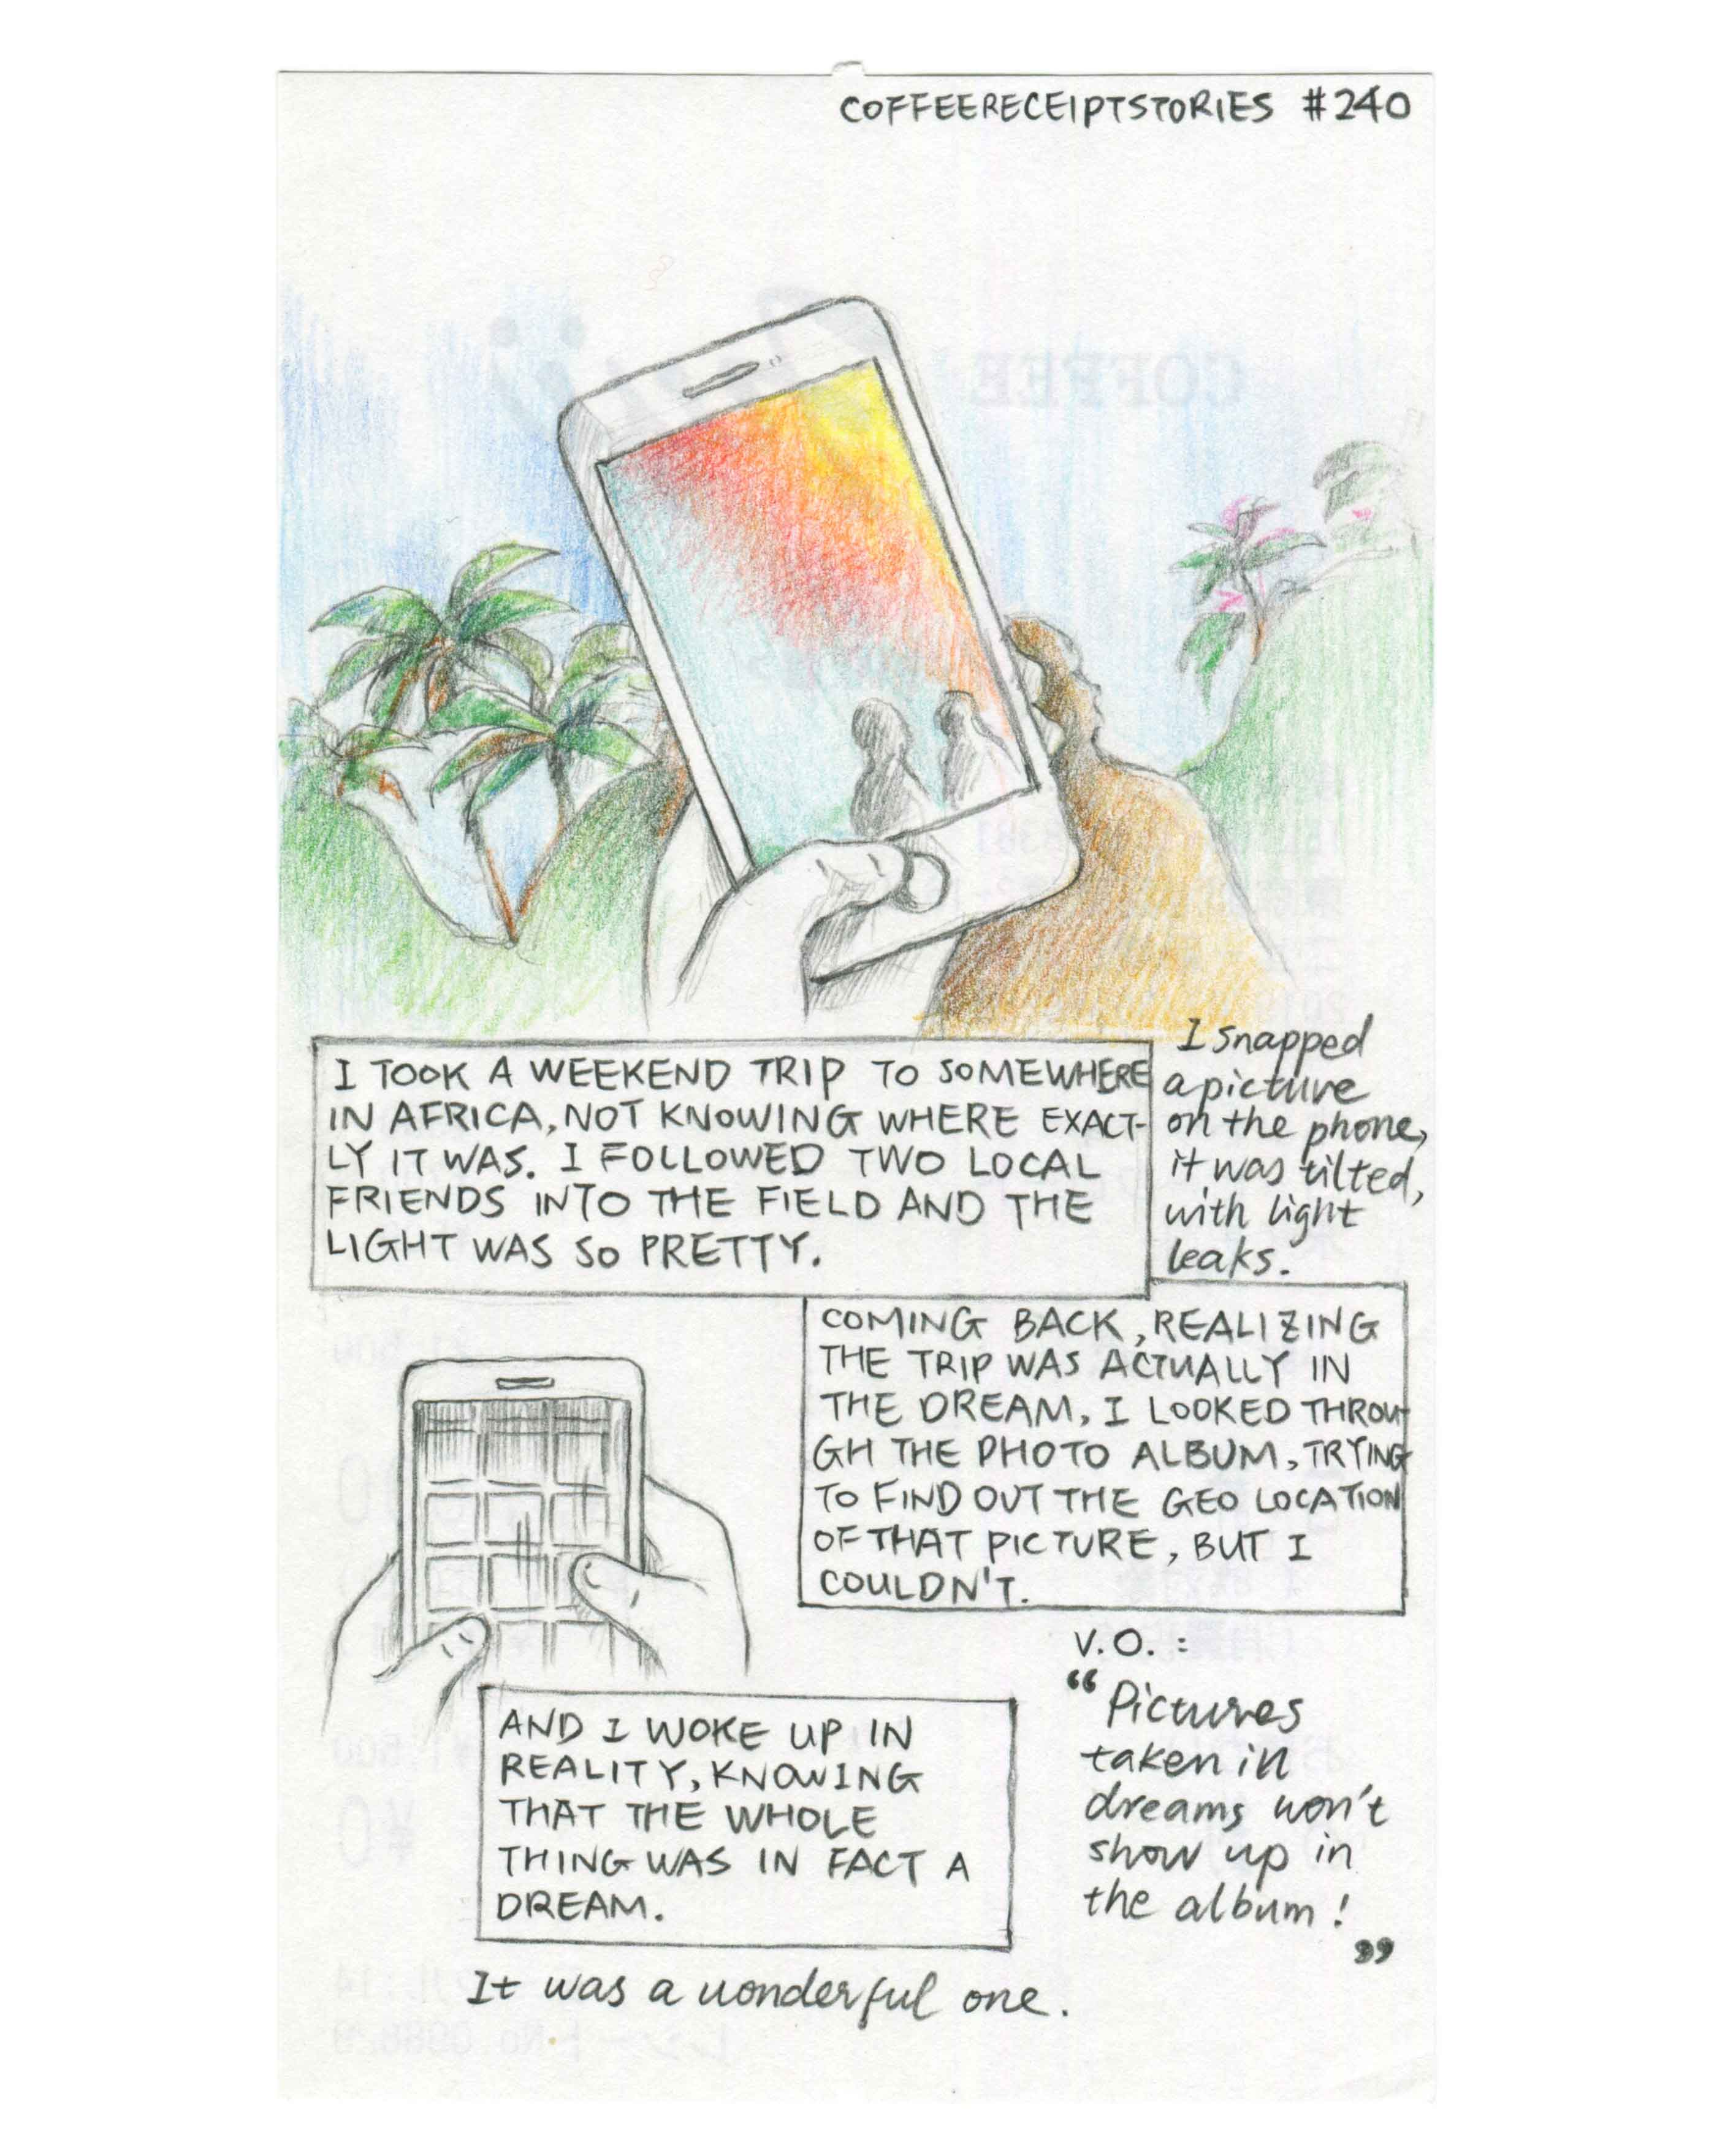 COFFEERECEIPTSTORIES #240
COFFEE
I TOOK A WEEKEND TRIP TO SOMEWHERE
IN AFRICA, NOT KNOWING WHERE EXACT-
LY IT WAS. I FOLLOWED TWO LOCAL
FRIENDS INTO THE FIELD AND THE
LIGHT WAS SO PRETTY.
I snapped
a picture
on the phone,
it was tilted,
with light
leaks.
COMING BACK, REALIZING
THE TRIP WAS ACTUALLY IN
THE DREAM, I LOOKED THROU-
GH THE PHOTO ALBUM, TRYING
TO FIND OUT THE GEO LOCATION
OF THAT PICTURE, BUT I
COULDN'T.
V.O. :
"Pictures
taken in
dreams won't
show up in
the album!
"
AND I WOKE UP IN
REALITY, KNOWING
THAT THE WHOLE
THING WAS IN FACT A
DREAM.
It was a wonderful one.